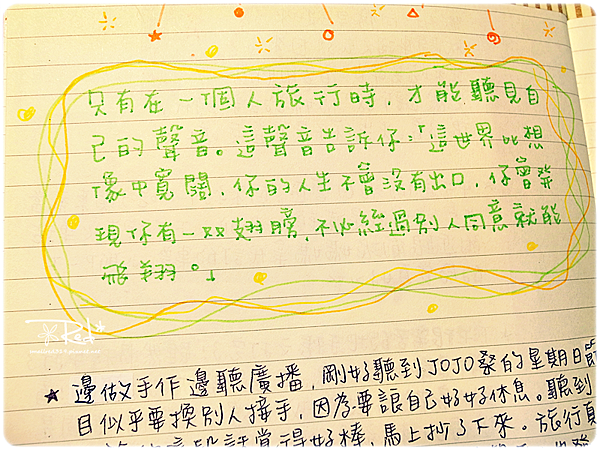 只有在一個人旅行時，才能聽見自
己的聲音。這聲音告訴你：「這世界比想
像中寬闊，你的人生不會沒有出口，你會發
現你有一双翅膀，不必經過別人同意就能
飛翔。」
Red
★ 邊做手作邊聽廣播，剛好聽到JOJO桑的星期日節
目似乎要換別人接手，因為要讓自己好好休息。聽到
覺得好棒，馬上抄了下來。旅行真